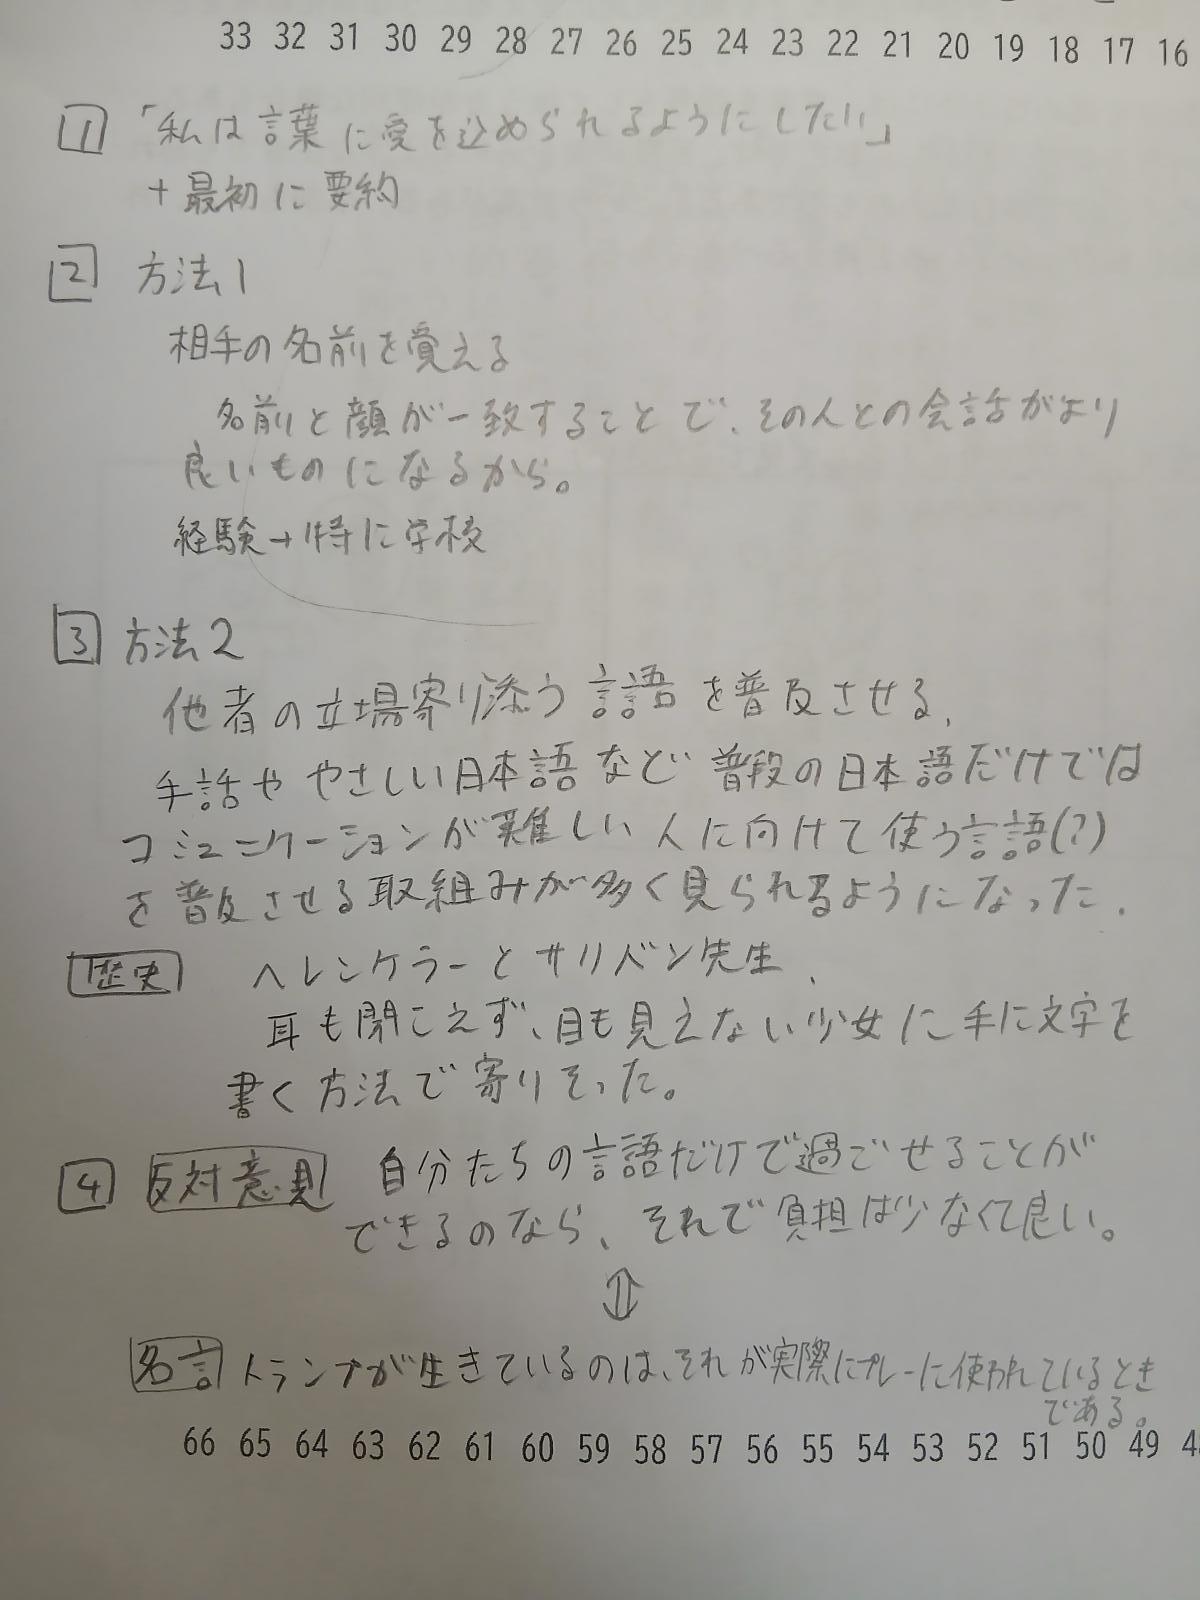 33 32 31 30 29 28 27 26 25 24 23 22 21 20 19 18 17 16
1 「私は言葉に愛を込められるようにしたい」
+最初に要約
2 方法1
相手の名前を覚える
名前と顔が一致することで、その人との会話がより
良いものになるから。
経験→特に学校
3 方法2
他者の立場寄り添う言語を普及させる、
手話ややさしい日本語など普段の日本語だけでは
コミュニケーションが難しい人に向けて使う言語(?)
を普及させる取組みが多く見られるようになった、
歴史 ヘレンケラーとサリバン先生、
耳も聞こえず、目も見えない少女に手に文字を
書く方法で寄りそった。
4 反対意見 自分たちの言語だけで過ごせることが
できるのなら、それで負担は少なくて良い。
⇕
名言 トランプが生きているのは、それが実際にプレーに使われているとき
である。
66 65 64 63 62 61 60 59 58 57 56 55 54 53 52 51 50 49